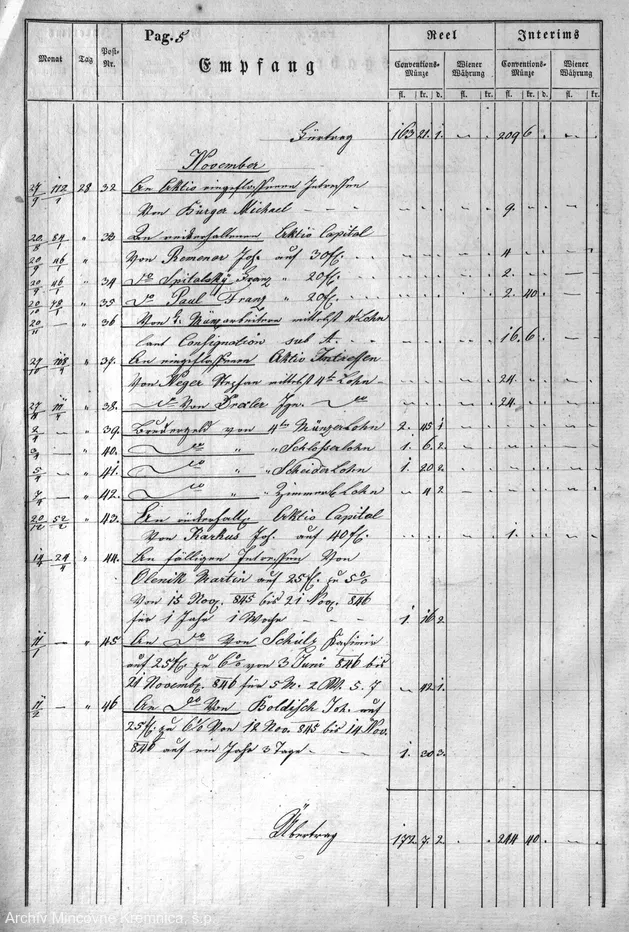 Pag. 5
Reel Interims
Monat Tag Post-Nr. Empfang Conventions-Münze Wiener Währung Conventions-Münze Wiener Währung
fl. kr. d. fl. kr. fl. kr. d. fl. kr.
Fürtrag 163 21. 1. 209 6
November
28 32 An Aktio eingeflossenen Intressen
Von Burger Michael 9.
20/8 84/1 " 33 An Aktio Capital
20/9 46/1 Von Remener Joh. auf 30 fl. 4
20/9 46/1 " 34 do Spitalsky Franz " 20 fl. 2.
20/10 78/1 " 35 do Paul Franz " 20 fl. 2. 40
20/11 — " 36 Von Münzarbeitern mittelst Lohn
laut Consignation sub A. 16. 6
" 37. An eingeflossenen Aktio Intressen
Von Neger Stephan mittelst 4th Lohn 24.
" 38. do Von Drexler Ign. do 24.
2/4 — " 39. Brudergeld von 4th Münzer Lohn 2. 45 1
3/4 — " 40. do " " Schlosserlohn 1. 6. 2.
5/4 — " 41. do " " Lohn 1. 20 2.
7/4 — " 42. do " Zimmer Lohn 4 2
20/12 52/2 " 43. An Aktio Capital
Von Karkus Joh. auf 40 fl. 1.
24/4 " 44. An fälligen Intressen Von
Olenik Martin auf 25 fl. zu 5%
Von 15 Nov. 845 bis 21 Nov. 846
für 1 Jahr 1 Woche 1 16 2.
11/1 — " 45 An do Von Schulz Kasimir
auf 25 fl. zu 6% von 3 Juni 846 bis
21 Novemb. 846 für 5 M. 2 W. 5. T 42 1.
11/2 — " 46 An do Von Boldisch Joh. auf
25 fl. zu 6% Von 12 Nov. 845 bis 14 Nov.
846 auf ein Jahr 3 Tage 1. 30 3.
Übertrag 172. 7. 2. 244 40
Archív Mincovne Kremnica, š.p.